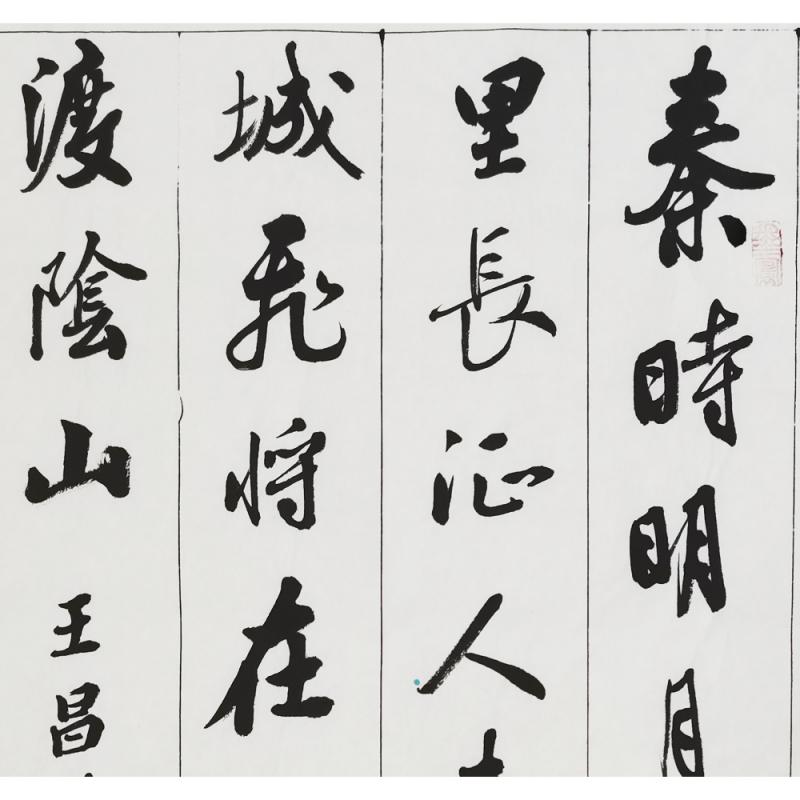 秦時明月
里長征人
城飛将在
渡陰山 王昌